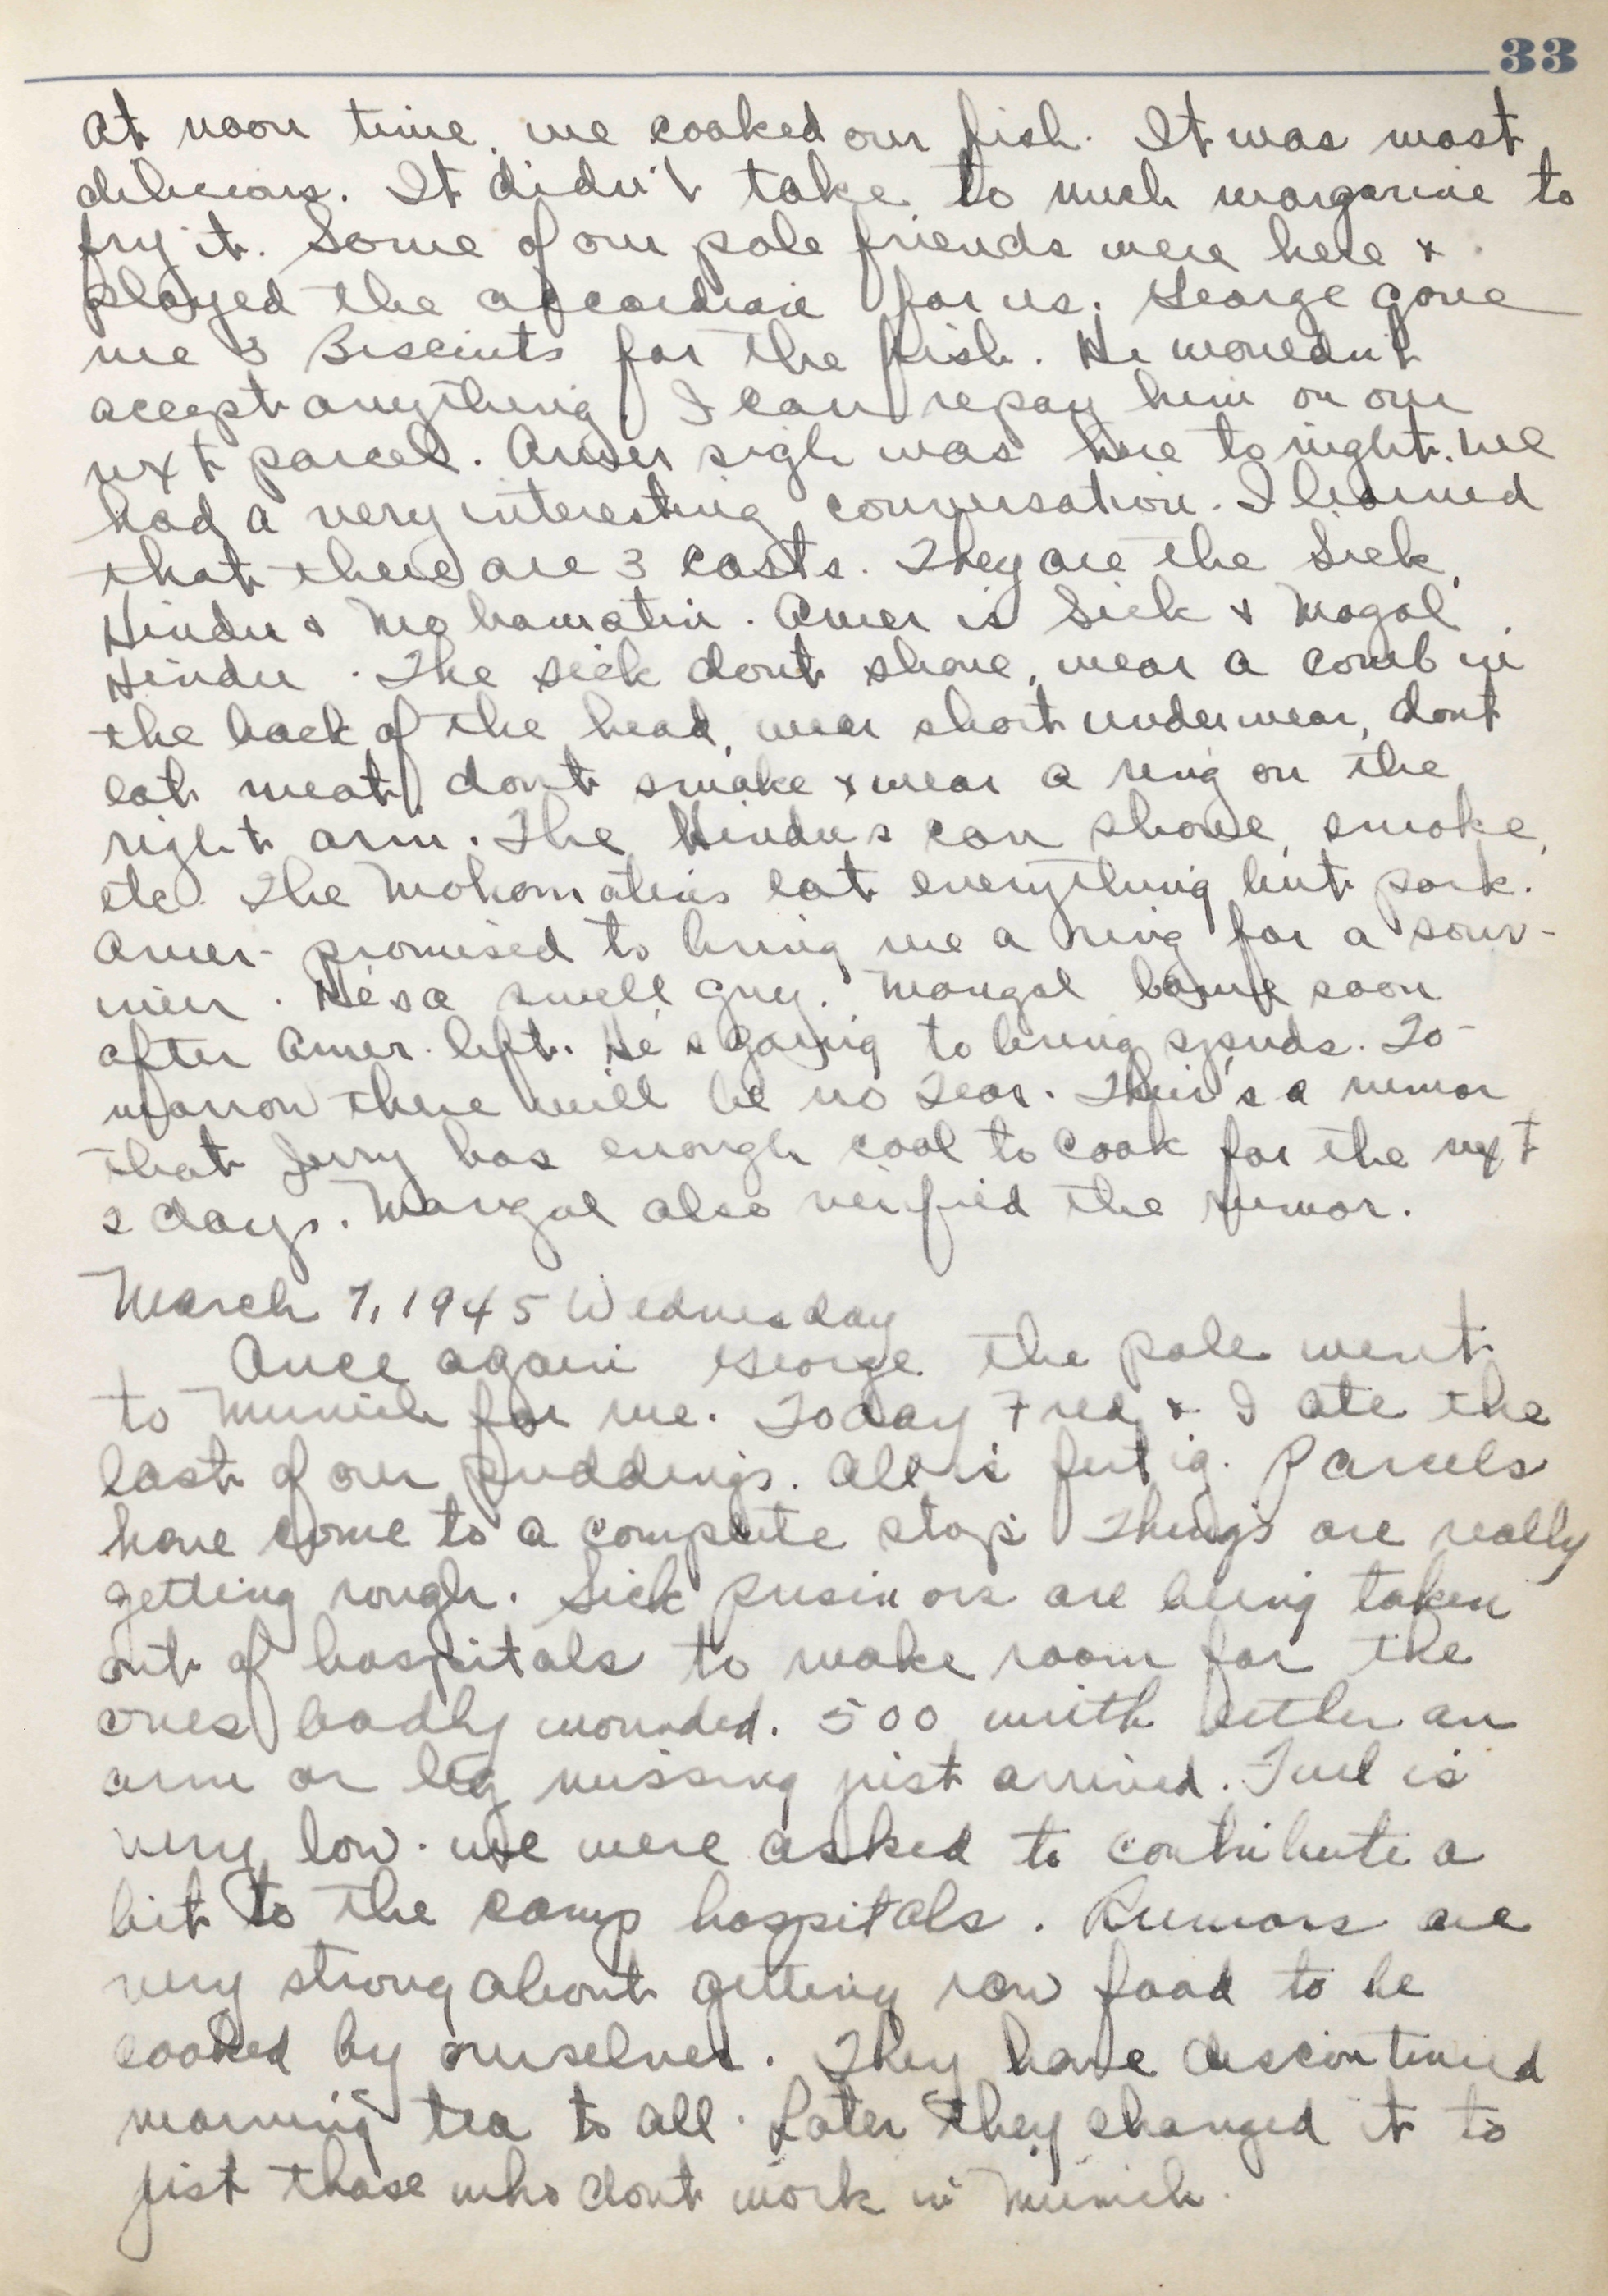 33
At noon time, we cooked our fish. It was most
delicious. It didn't take to much margarine to
fry it. Some of our pole friends were here &
played the accordian for us. George gave
me 3 Biscuits for the fish. He wouldn't
accept anything. I can repay him on our
next parcel. Amer sigh was here to night. We
had a very interesting conversation. I learned
that there are 3 casts. They are the Siek,
Hindu & Mohamatin. Amer is Siek & Mogal
Hindu. The siek dont shave, wear a comb in
the back of the head, wear short underwear, dont
eat meat, dont smoke & wear a ring on the
right arm. The Hindus can shave, smoke,
etc. The Mohomatins eat everything but pork.
Amer promised to bring me a ring for a souv-
nier. He's a swell guy. Mangal came soon
after Amer left. He's going to bring spuds. To-
morrow there will be no Tea. Their's a rumor
that Jerry has enough coal to cook for the next
2 days. Mangal also verified the rumor.
March 7, 1945 Wednesday
Once again George the pole went
to Munich for me. Today Fred & I ate the
last of our puddings. All is fertig. Parcels
have come to a complete stop. Things are really
getting rough. Sick prisinors are being taken
out of hospitals to make room for the
ones badly wounded. 500 with either an
arm or leg missing just arrived. Fuel is
very low. We were asked to contribute a
bit to the camp hospitals. Rumors are
very strong about getting raw food to be
cooked by ourselves. They have discontinued
morning tea to all. Later they changed it to
just those who dont work in Munich.